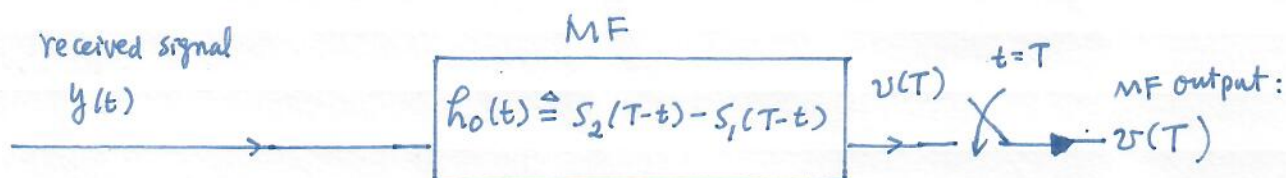 received signal
y(t)
MF
h₀(t) ≜ S₂(T-t) - S₁(T-t)
v(T)
t=T
MF output:
v(T)